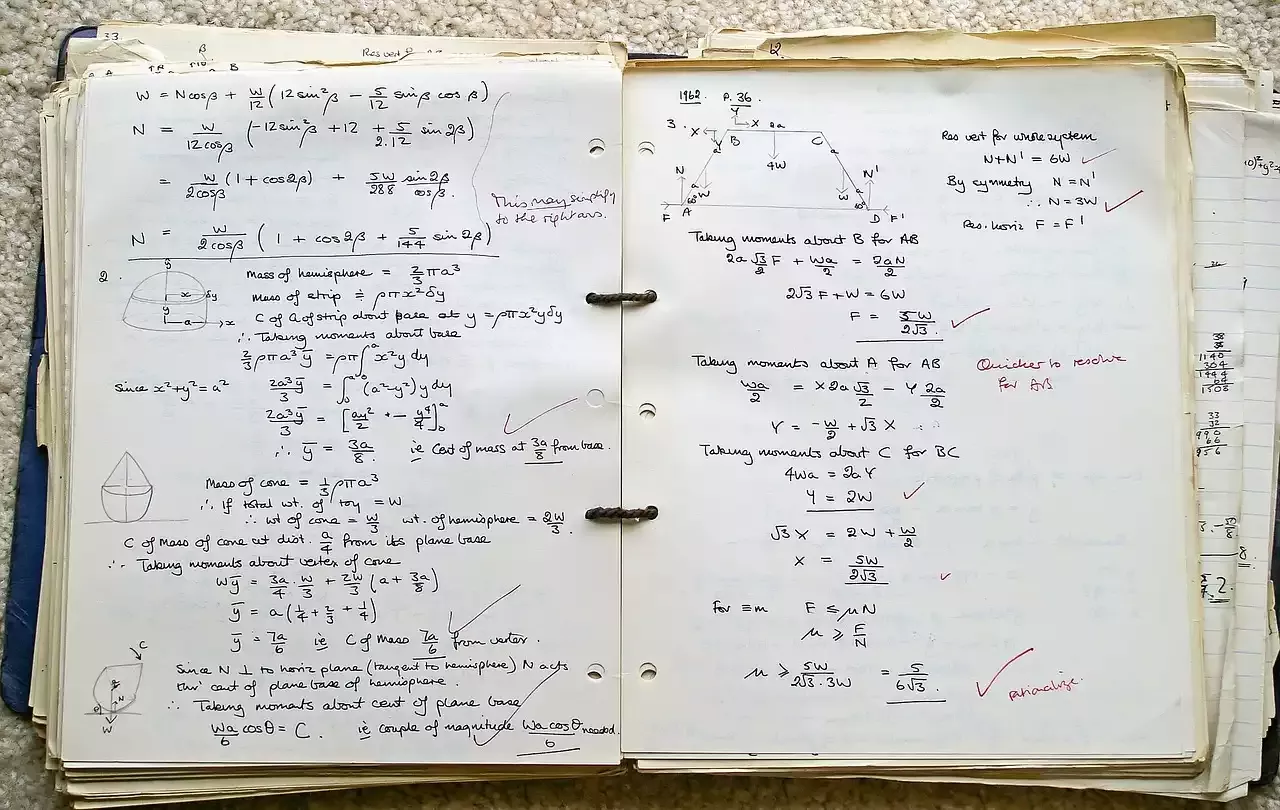 33.
β
Res vert
W = Ncosβ + W/12 (12 sin²β − 5/12 sinβ cosβ)
N = W/12cosβ (−12sin²β + 12 + 5/2.12 sin 2β)
= W/2cosβ (1 + cos2β) + 5W/288 sin2β/cosβ.
This may simplify
to the right ans.
N = W/2cosβ (1 + cos2β + 5/144 sin 2β)
2.
y
x δy
y
a x
Mass of hemisphere = 2/3 πa³
Mass of strip ≑ ρπx²δy
C of G of strip about base at y = ρπx²yδy
∴ Taking moments about base
2/3 ρπa³ȳ = ρπ∫₀ᵃ x²y dy
Since x²+y²=a² 2a³ȳ/3 = ∫₀ᵃ (a²−y²) y dy
2a³ȳ/3 = [ay²/2 − y⁴/4]₀ᵃ
∴ ȳ = 3a/8 ie Cent of mass at 3a/8 from base.
Mass of cone = 1/3 ρπa³
∴ If total wt. of toy = W
∴ wt of cone = W/3 wt. of hemisphere = 2W/3.
C of Mass of cone at dist. a/4 from its plane base
∴ Taking moments about vertex of cone
Wȳ = 3a/4 . W/3 + 2W/3 (a + 3a/8)
ȳ = a(1/4 + 2/3 + 1/4)
ȳ = 7a/6 ie C of Mass 7a/6 from vertex.
C
N
θ
W
Since N ⊥ to horiz plane (tangent to hemisphere) N acts
thro' cent of plane base of hemisphere.
∴ Taking moments about cent of plane base
Wa/6 cosθ = C. ie couple of magnitude Wa cosθ/6 needed.
12.
1962 P. 36.
3.
Y
X X 2a
Y B C
a a
4W
N N'
a W W a
60° 60°
F A D F'
Res vert for whole system
N+N' = 6W
By symmetry N = N'
∴ N = 3W
Res. horiz F = F'
Taking moments about B for AB
2a √3/2 F + Wa/2 = 2aN/2
2√3 F + W = 6W
F = 5W/2√3.
Taking moments about A for AB
Quicker to resolve
for AB
Wa/2 = X 2a √3/2 − Y 2a/2
Y = −W/2 + √3 X
Taking moments about C for BC
4Wa = 2aY
Y = 2W
√3 X = 2W + W/2
X = 5W/2√3
For ≡m F ≤ μN
μ ≥ F/N
μ ≥ 5W/2√3.3W = 5/6√3.
rationalize.
38
1140
304
1444
64
1508
33
32
990
66
956